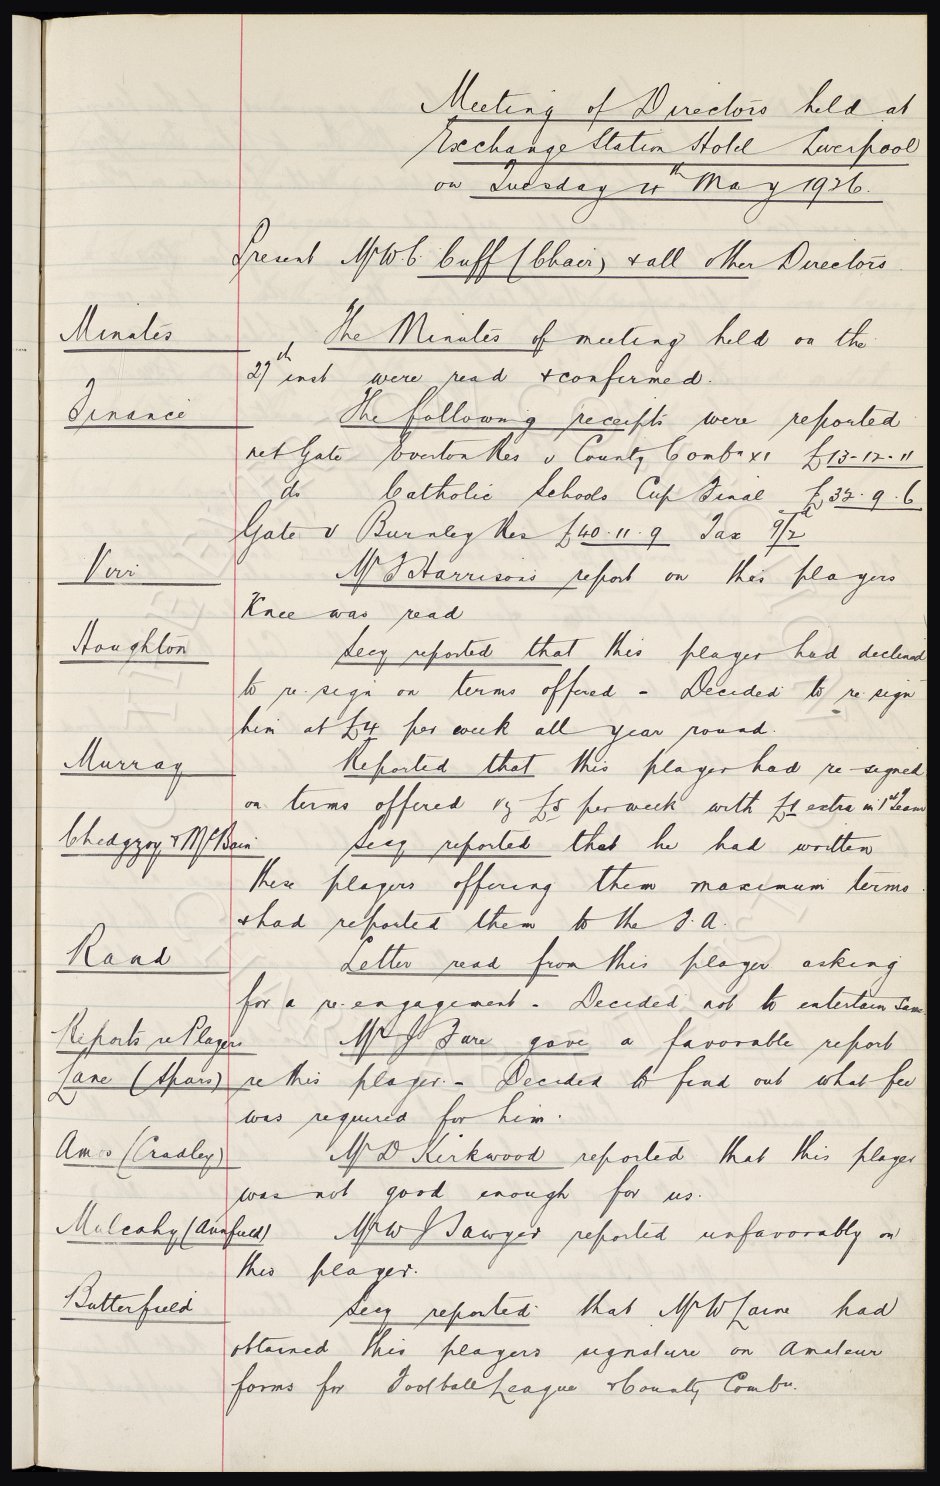 Meeting of Directors held at
Exchange Station Hotel Liverpool
on Tuesday 4th May 1926.
Present Mr W.C. Cuff (Chair) & all other Directors
Minutes The Minutes of meeting held on the
27th inst were read & confirmed.
Finance The following receipts were reported
net Gate Everton Res v County Combn XI £13-12-11
do Catholic Schools Cup Final £32.9.6
Gate v Burnley Res £40.11.9 Tax 9/2d
Virr Mr J Harrisons report on this players
Knee was read
Houghton Secy reported that this player had declined
to re.sign on terms offered - Decided to re.sign
him at £4 per week all year round.
Murray Reported that this player had re-signed
on terms offered viz £5 per week with £1 extra in 1st Team
Chedgzoy & McBain Secy reported that he had written
these players offering them maximum terms.
& had reported them to the F.A.
Rand Letter read from this player asking
for a re-engagement - Decided not to entertain same.
Reports re Players Mr J Fare gave a favorable report
Lane (Spurs) re this player. - Decided to find out what fee
was required for him.
Amos (Cradley) Mr D Kirkwood reported that this player
was not good enough for us.
Mulcahy (Annfield) Mr W J Sawyer reported unfavorably on
this player.
Butterfield Secy reported that Mr W Laine had
obtained this players signature on Amateur
forms for Football League & County Combn.